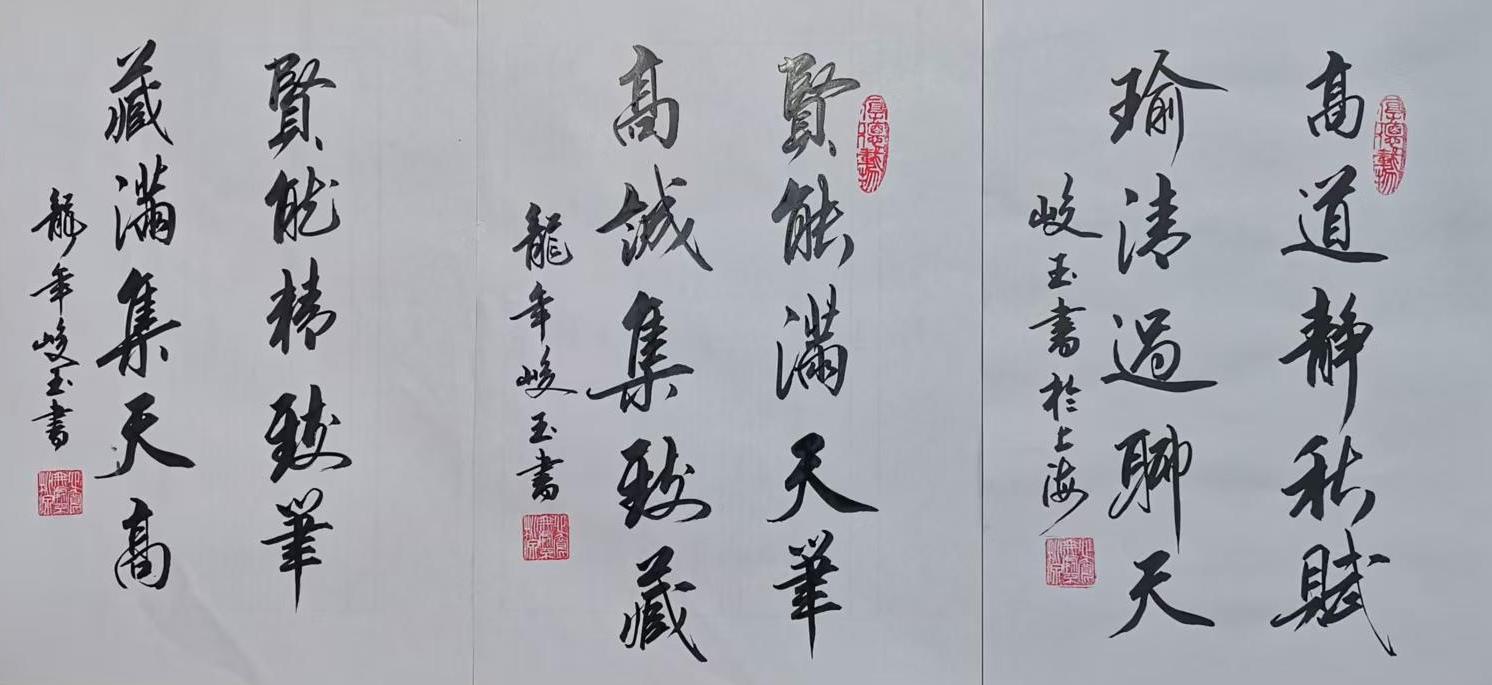 高道靜秋賦
瑜清過聊天
峻玉書於上海
賢能滿天筆
高誠集致藏
龍年峻玉書
賢能精致筆
藏滿集天高
龍年峻玉書